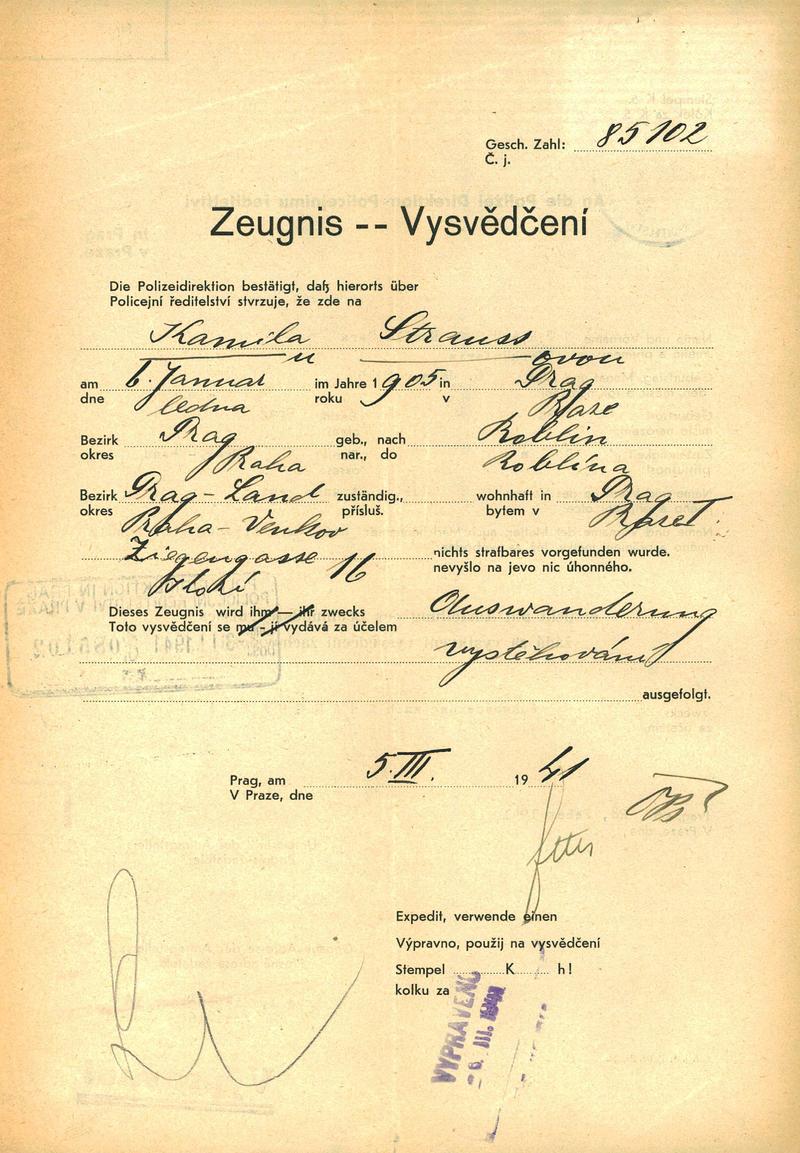 Gesch. Zahl: 85102
Č. j.
Zeugnis -- Vysvědčení
Die Polizeidirektion bestätigt, daß hierorts über
Policejní ředitelství stvrzuje, že zde na
Kamila Strauss
u ovou
am 6. Januar im Jahre 1905 in Prag
dne ledna roku v Praze
Bezirk Prag geb., nach Roblin
okres Praha nar., do Roblína
Bezirk Prag-Land zuständig., wohnhaft in Prag
okres Praha-Venkov přísluš. bytem v Praze I.
Ziegengasse 16 nichts strafbares vorgefunden wurde.
Kozí nevyšlo na jevo nic úhonného.
Dieses Zeugnis wird ihm — ihr zwecks Auswanderung
Toto vysvědčení se mu - jí vydává za účelem
vystěhování
ausgefolgt.
Prag, am 5. III. 1941
V Praze, dne
Expedit, verwende einen
Výpravno, použij na vysvědčení
Stempel K h!
kolku za
VYPRAVENO
- 6. III. 1941